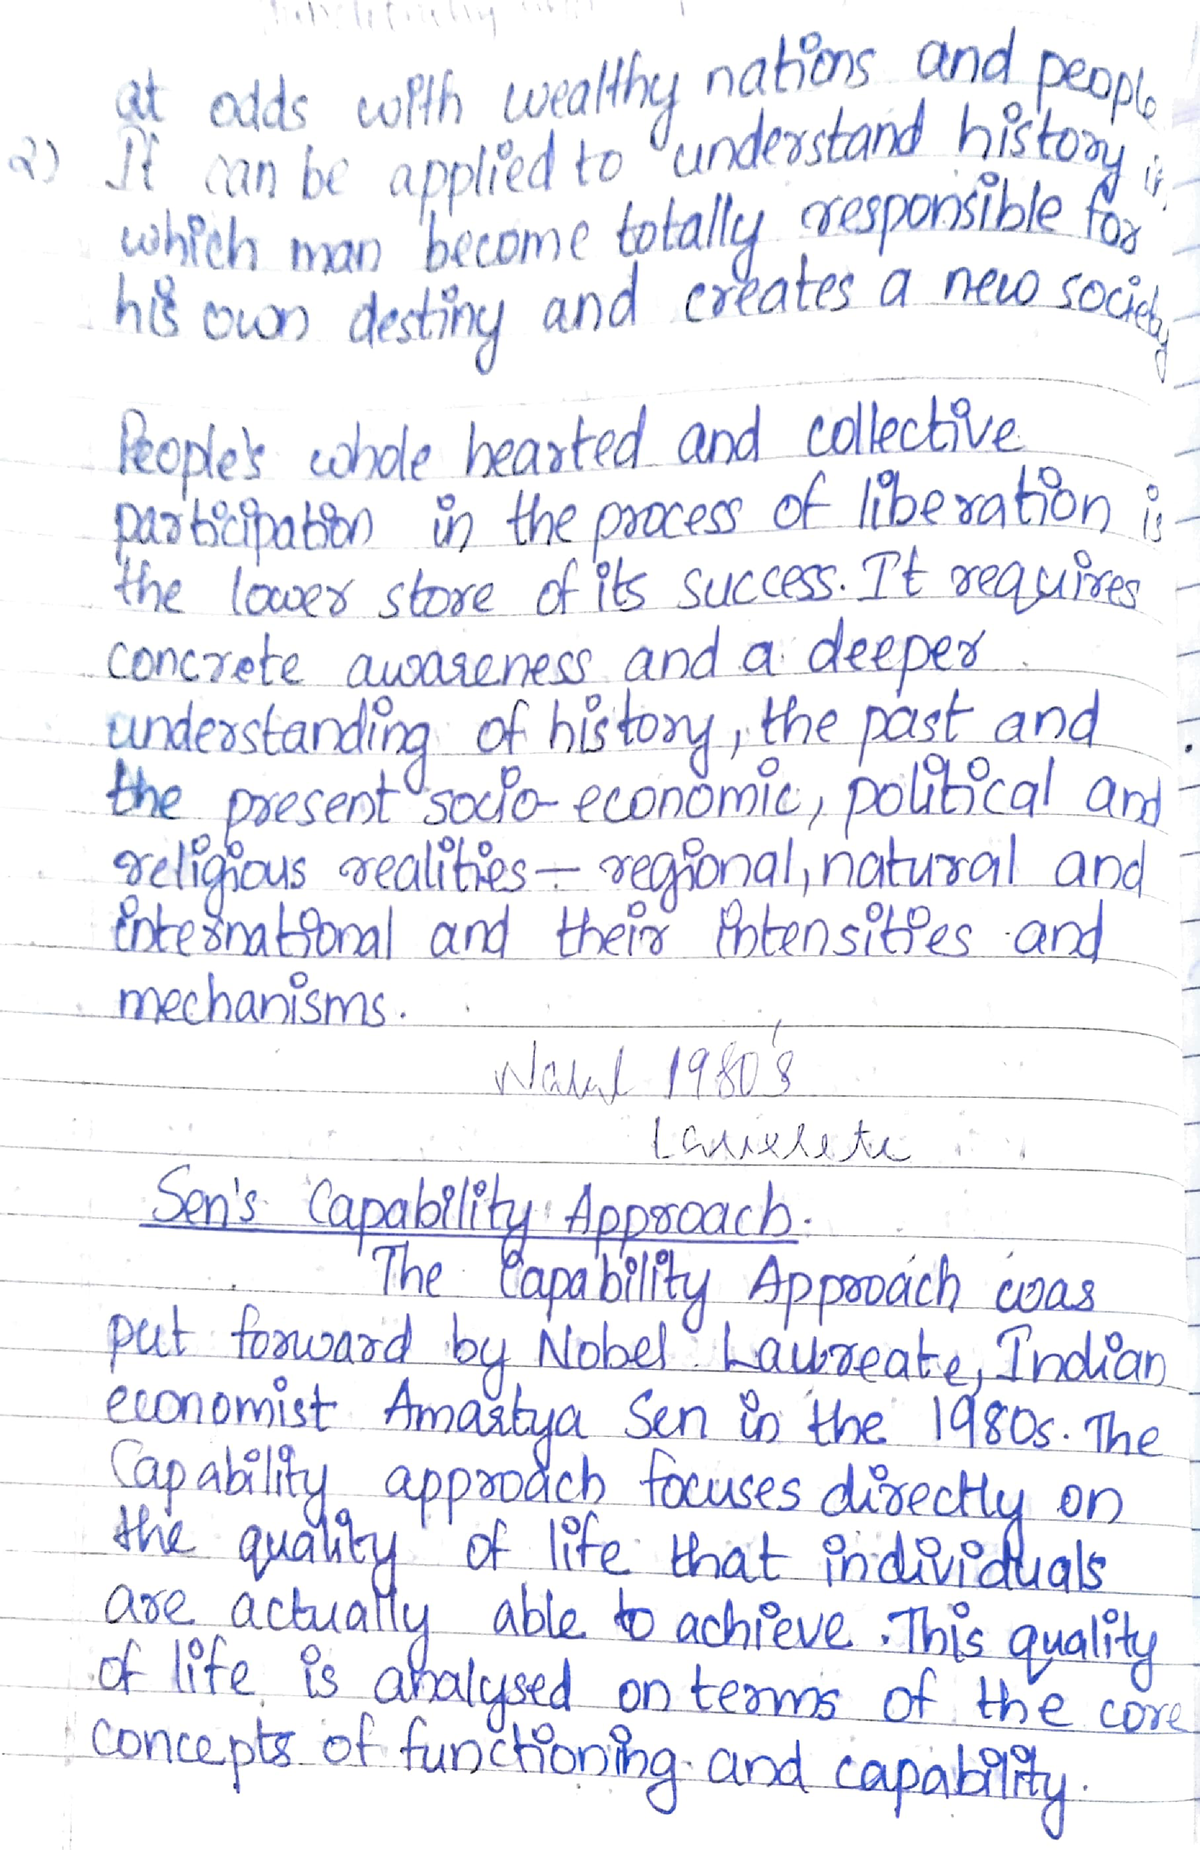 at odds with wealthy nations and people
2) It can be applied to understand history in
which man become totally responsible for
his own destiny and creates a new society
People's whole hearted and collective
participation in the process of liberation is
the lower store of its success. It requires
concrete awareness and a deeper
understanding of history, the past and
the present socio-economic, political and
religious realities — regional, natural and
international and their intensities and
mechanisms.
1980's
Sen's Capability Approach.
The Capability Approach was
put forward by Nobel Laureate, Indian
economist Amartya Sen in the 1980s. The
Capability approach focuses directly on
the quality of life that individuals
are actually able to achieve. This quality
of life is analysed on terms of the core
concepts of functioning and capability.